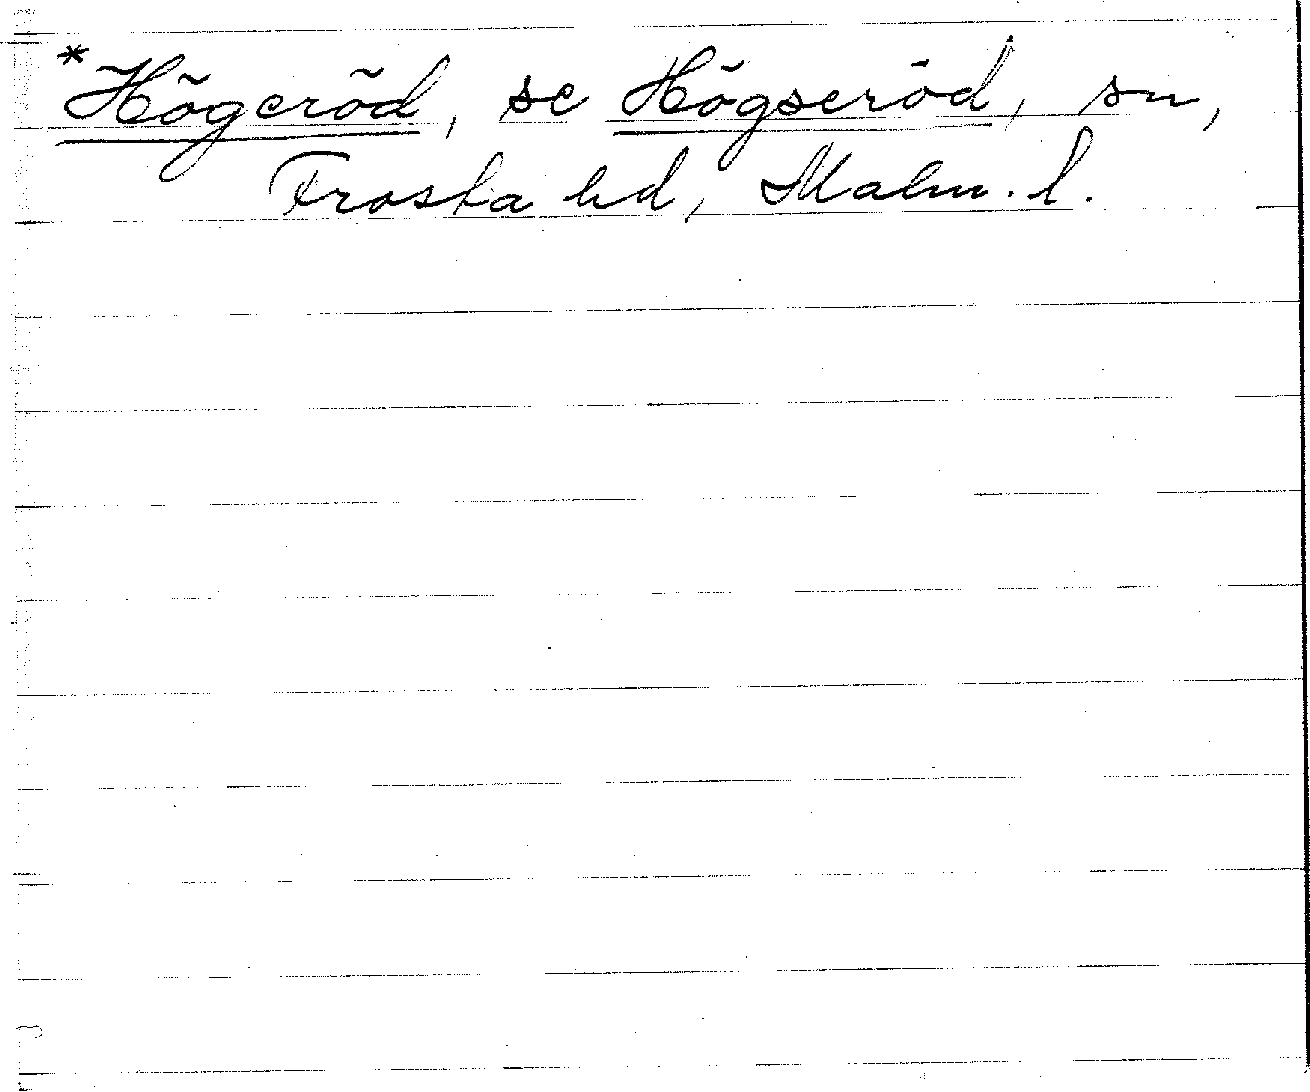 *Högeröd, se Högseröd, sn,
Frosta hd, Malm. l.